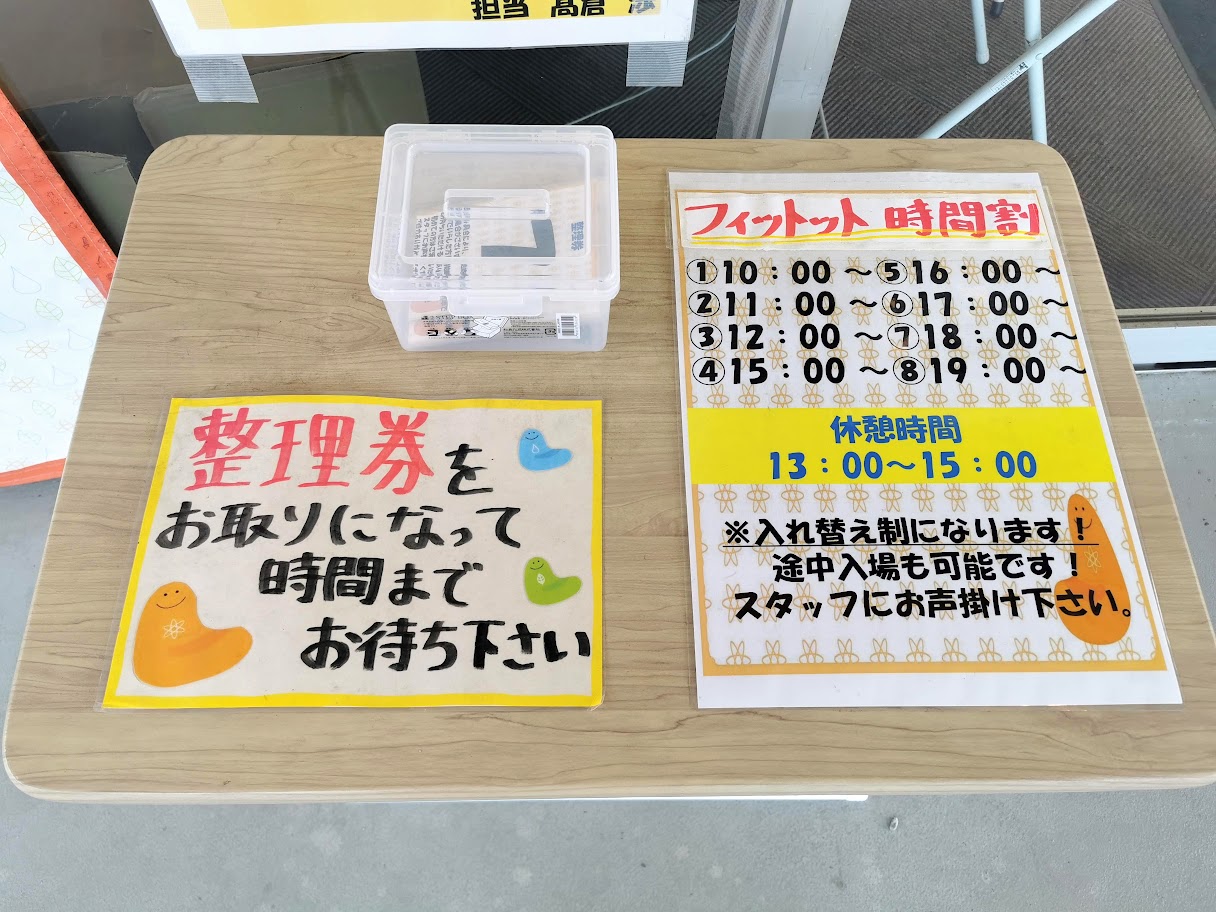 担当 髙倉
整理券
フィットット 時間割
①10：00～⑤16：00～
②11：00～⑥17：00～
③12：00～⑦18：00～
④15：00～⑧19：00～
休憩時間
13：00～15：00
※入れ替え制になります！
途中入場も可能です！
スタッフにお声掛け下さい。
整理券を
お取りになって
時間まで
お待ち下さい